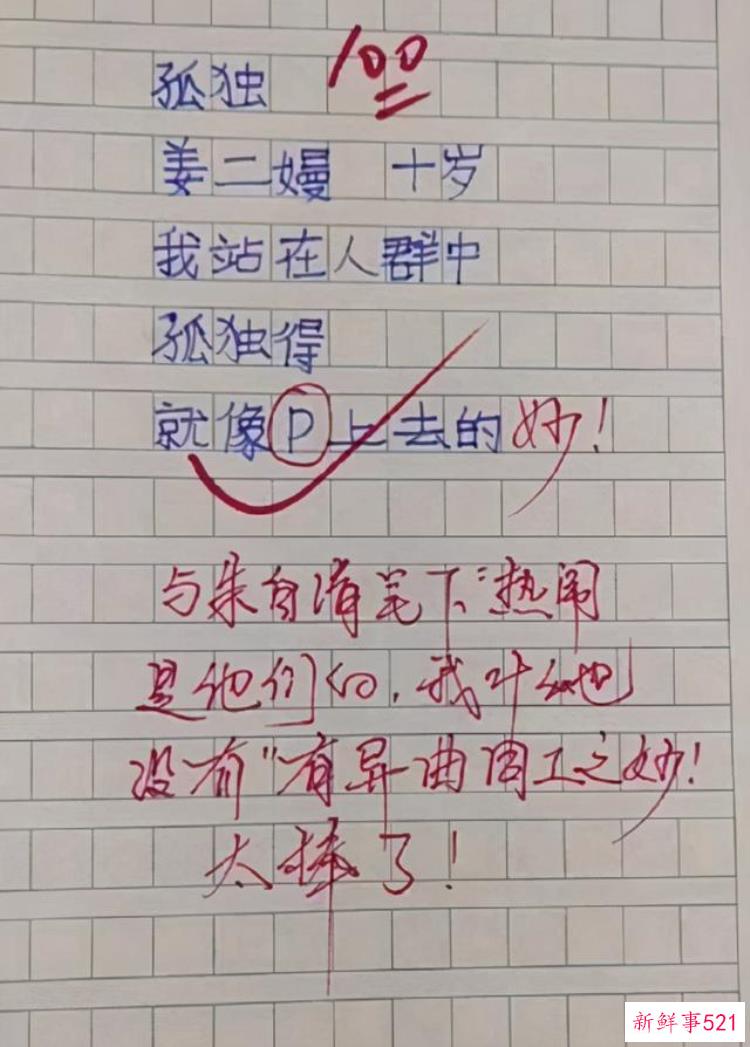 孤独 100
姜二嫚 十岁
我站在人群中
孤独得
就像P上去的 妙!
与朱自清笔下"热闹
是他们的,我什么也
没有"有异曲同工之妙!
太棒了!
新鲜事521